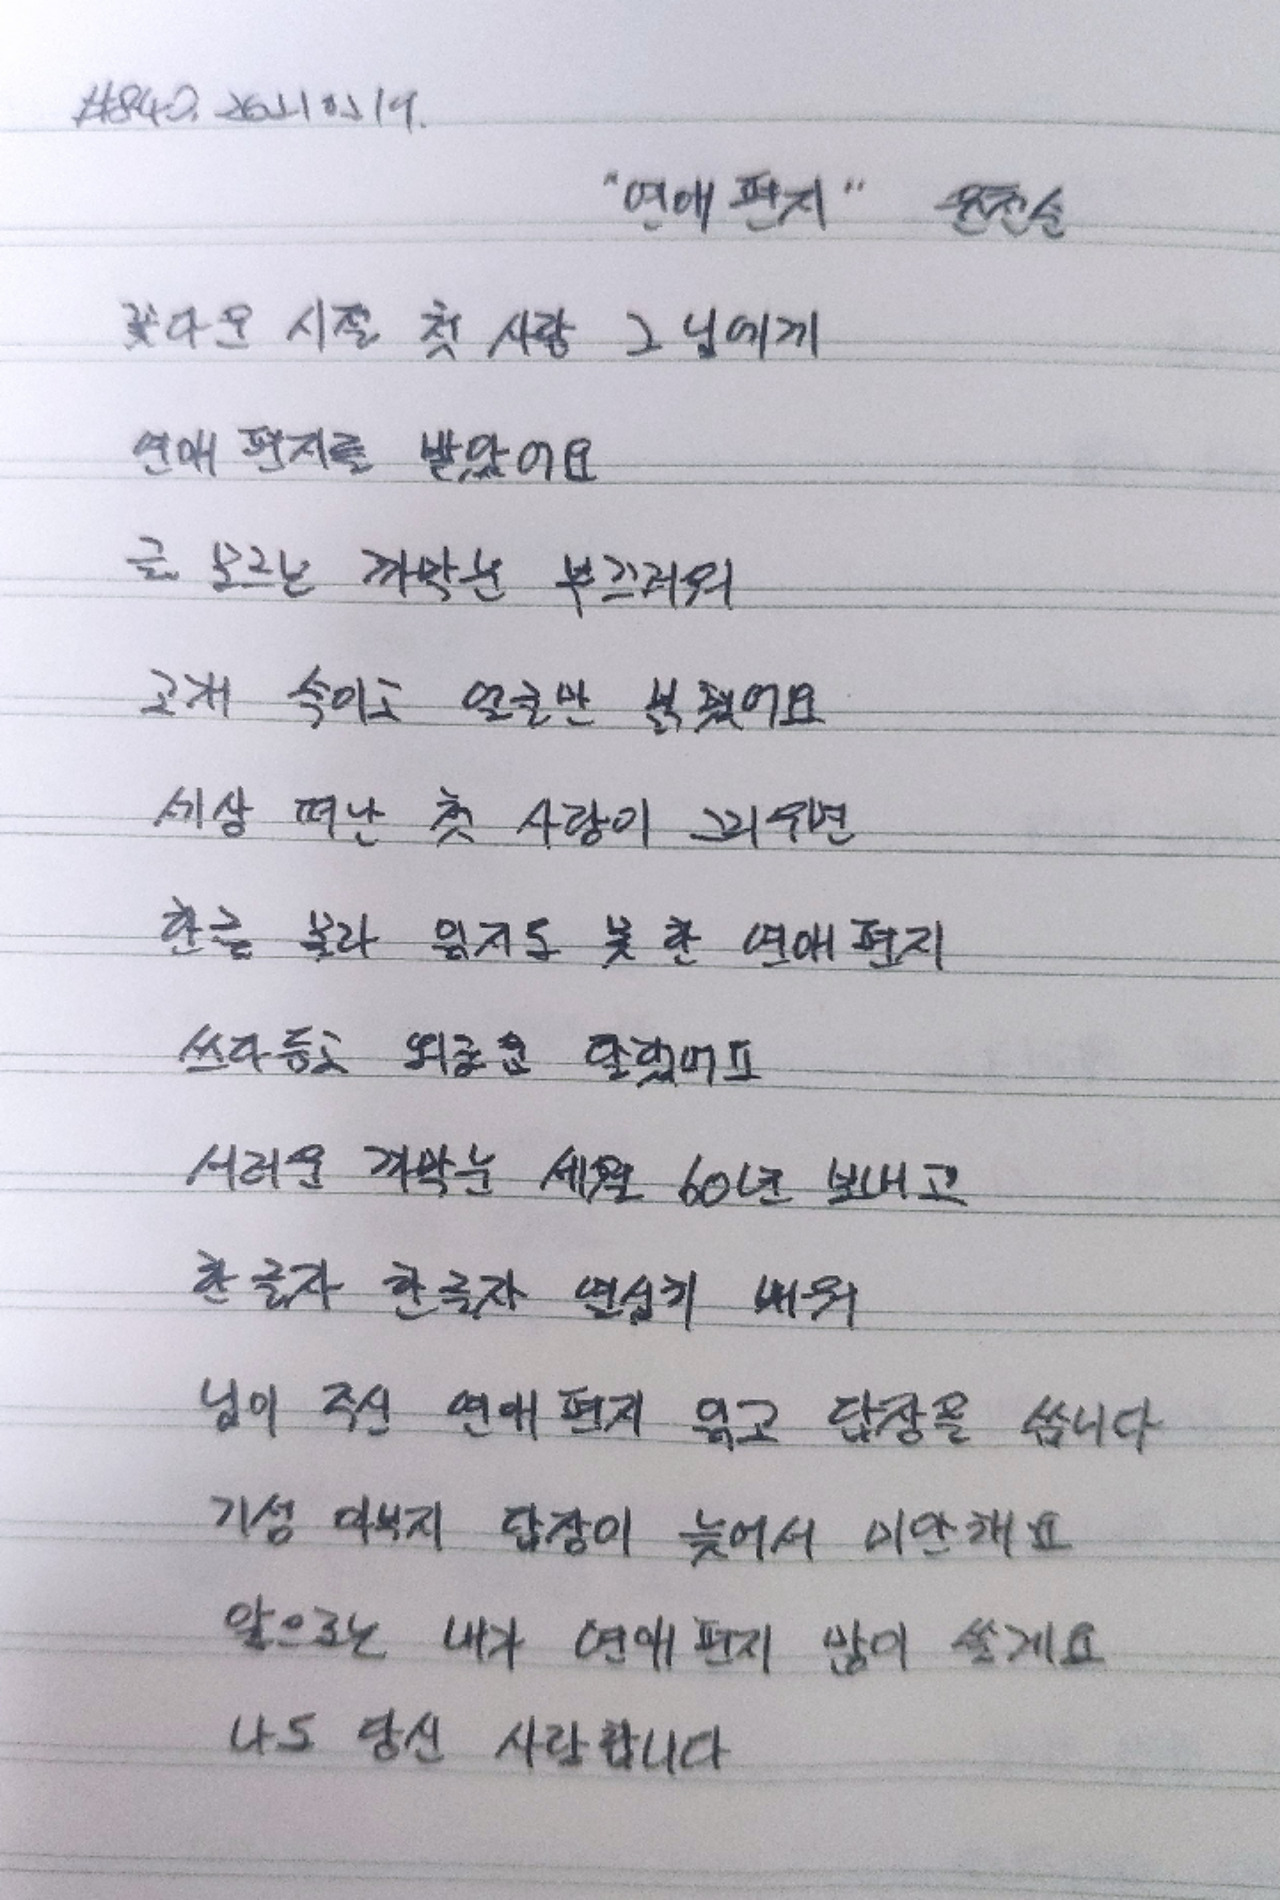 #840. 2021 02 19.
"연애 편지" 윤천순
꽃다운 시절 첫 사랑 그 님에게
연애 편지를 받았어요
글 모르는 까막눈 부끄러워
고개 숙이고 얼굴만 붉혔어요
세상 떠난 첫 사랑이 그리우면
한글 몰라 읽지도 못 한 연애 편지
쓰다듬고 외로움 달랬어요
서러운 까막눈 세월 60년 보내고
한 글자 한 글자 열심히 배워
님이 주신 연애 편지 읽고 답장을 씁니다
기성 아부지 답장이 늦어서 미안해요
앞으로는 내가 연애 편지 많이 쓸게요
나도 당신 사랑합니다